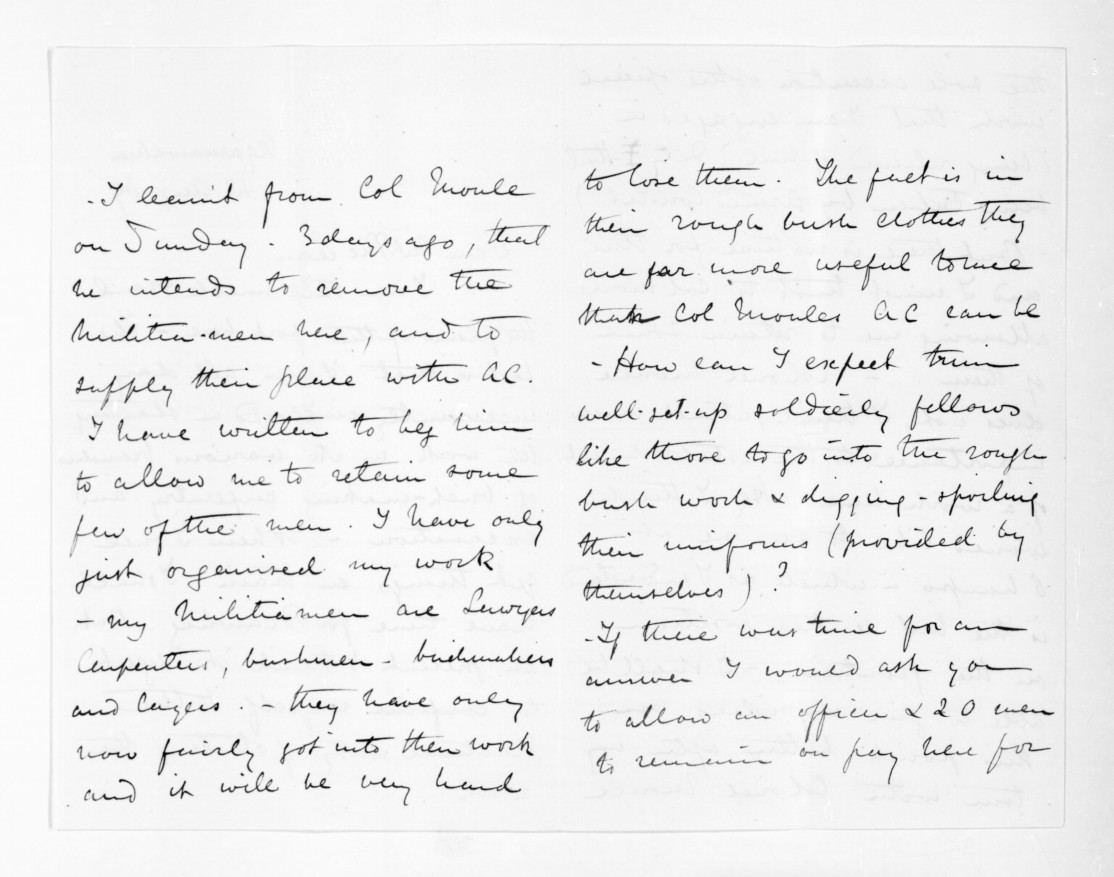 - I learnt from Col Moule
on Sunday - 3 days ago, that
he intends to remove the
Militia-men here, and to
supply their place with AC.
I have written to beg him
to allow me to retain some
few of the men. I have only
just organised my work
- my Militiamen are Sawyers
Carpenters, bushmen - brickmakers
and layers. - they have only
now fairly got into their work
and it will be very hard
to lose them. The fact is in
their rough bush clothes they
are far more useful to me
than Col Moules AC can be
- How can I expect trim
well-set-up soldierly fellows
like those to go into the rough
bush work & digging - spoiling
their uniforms (provided by
themselves)?
- If there was time for an
answer I would ask you
to allow an officer & 20 men
to remain on pay here for